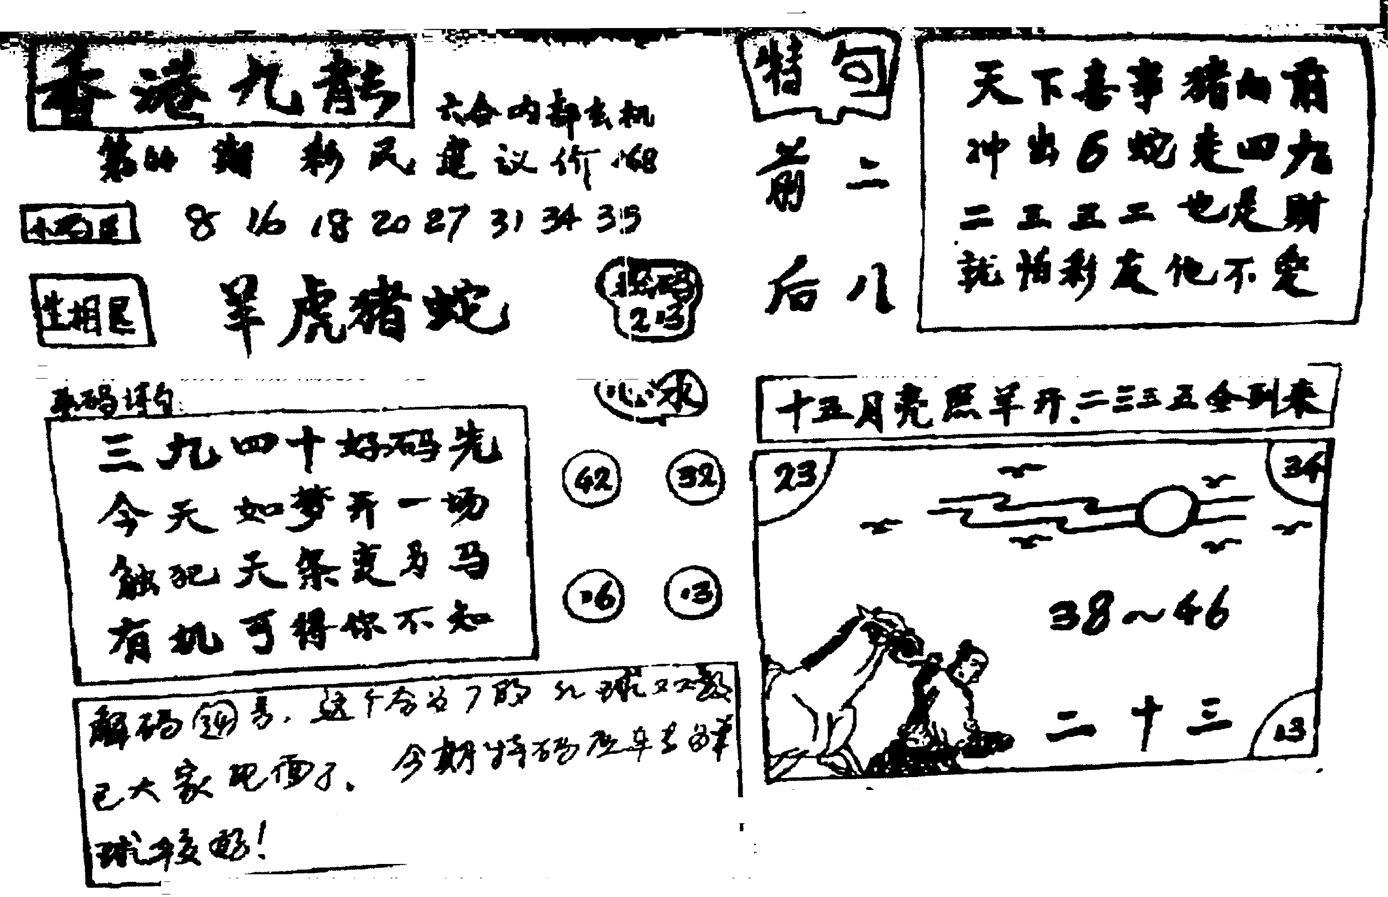 香港九龍
六合内部玄机
第44期 彩民建议价168
8 16 18 20 27 31 34 35
生相足
羊虎猪蛇
213
特句
前二
后八
天下喜事猪向前
冲出6蛇走四九
二三三二也是财
就怕彩友他不爱
三九四十好码先
今天如梦开一场
触犯天条变马
有机可得你不知
心水
42 32
16 13
解码34号,这个合分7的红球双数
已大家见面了.今期特码
球较好!
十五月亮照羊开.二三三五全到来
23 34
38~46
二十三
13